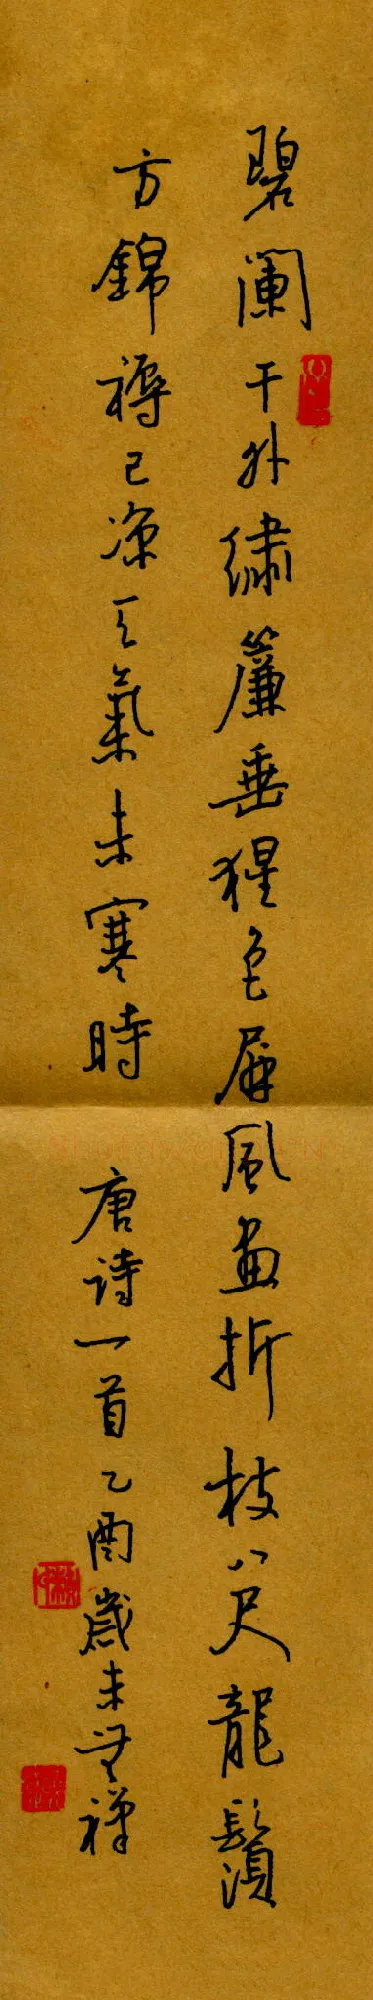 碧闌干外繡簾垂猩色屏風畫折枝八尺龍鬚
方錦褥已涼天氣未寒時 唐詩一首乙酉歲末